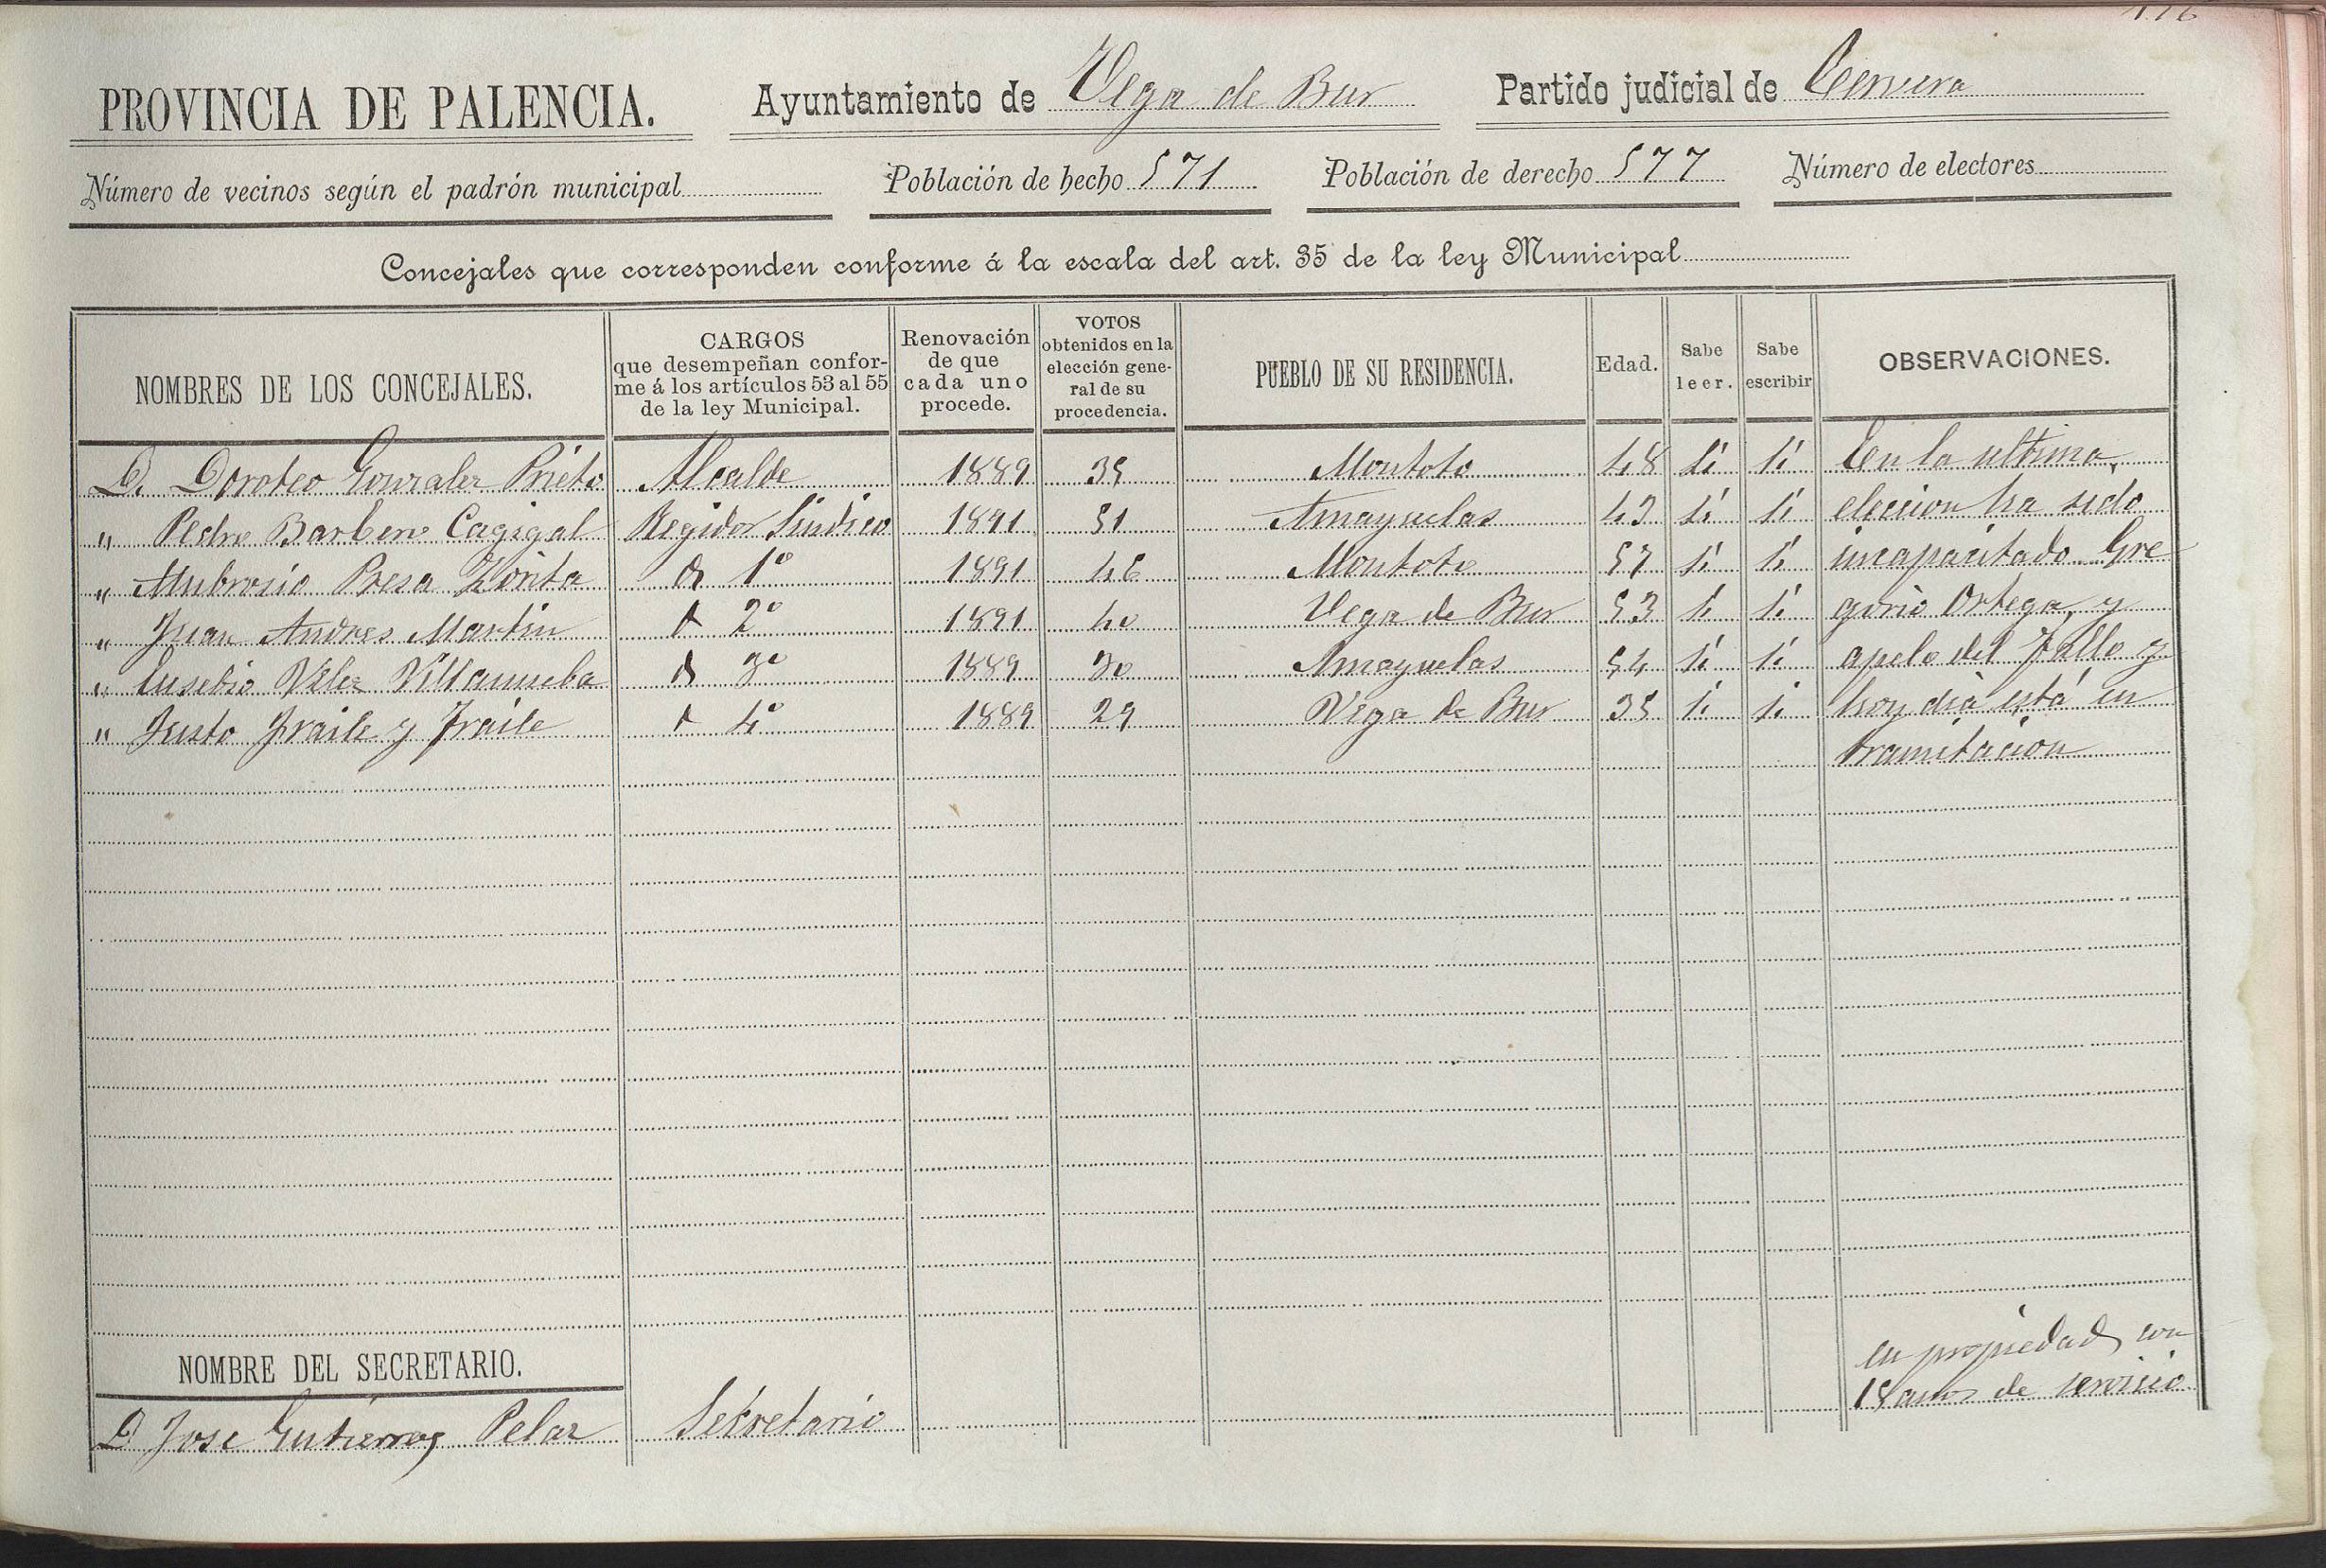 PROVINCIA DE PALENCIA. Ayuntamiento de Vega de Bur Partido judicial de Cervera
Número de vecinos según el padrón municipal Población de hecho 571 Población de derecho 577 Número de electores
Concejales que corresponden conforme á la escala del art. 35 de la ley Municipal
NOMBRES DE LOS CONCEJALES. CARGOS que desempeñan confor-me á los artículos 53 al 55 de la ley Municipal. Renovación de que cada uno procede. VOTOS obtenidos en la elección gene-ral de su procedencia. PUEBLO DE SU RESIDENCIA. Edad. Sabe leer. Sabe escribir OBSERVACIONES.
D. Doroteo Gonzalez Prieto Alcalde 1889 35 Montoto 48 Si Si En la ultima,
" Pedro Barbero Cagigal Regidor Sindico 1891 51 Amayuelas 43 Si Si eleccion ha sido
" Ambrosio Presa Zorita 1º 1891 46 Montoto 57 Si Si incapacitado Gre
" Juan Andres Martin 2º 1891 40 Vega de Bur 53 Si Si gorio Ortega, y
" Eusebio Velez Villanueba 3º 1889 30 Amayuelas 54 Si Si apelo del fallo y
" Justo Fraile y Fraile 4º 1889 29 Vega de Bur 35 Si Si hoy dia está en
tramitacion
NOMBRE DEL SECRETARIO. en propiedad con
D Jose Gutierrez Pelaz Secretario años de servicio